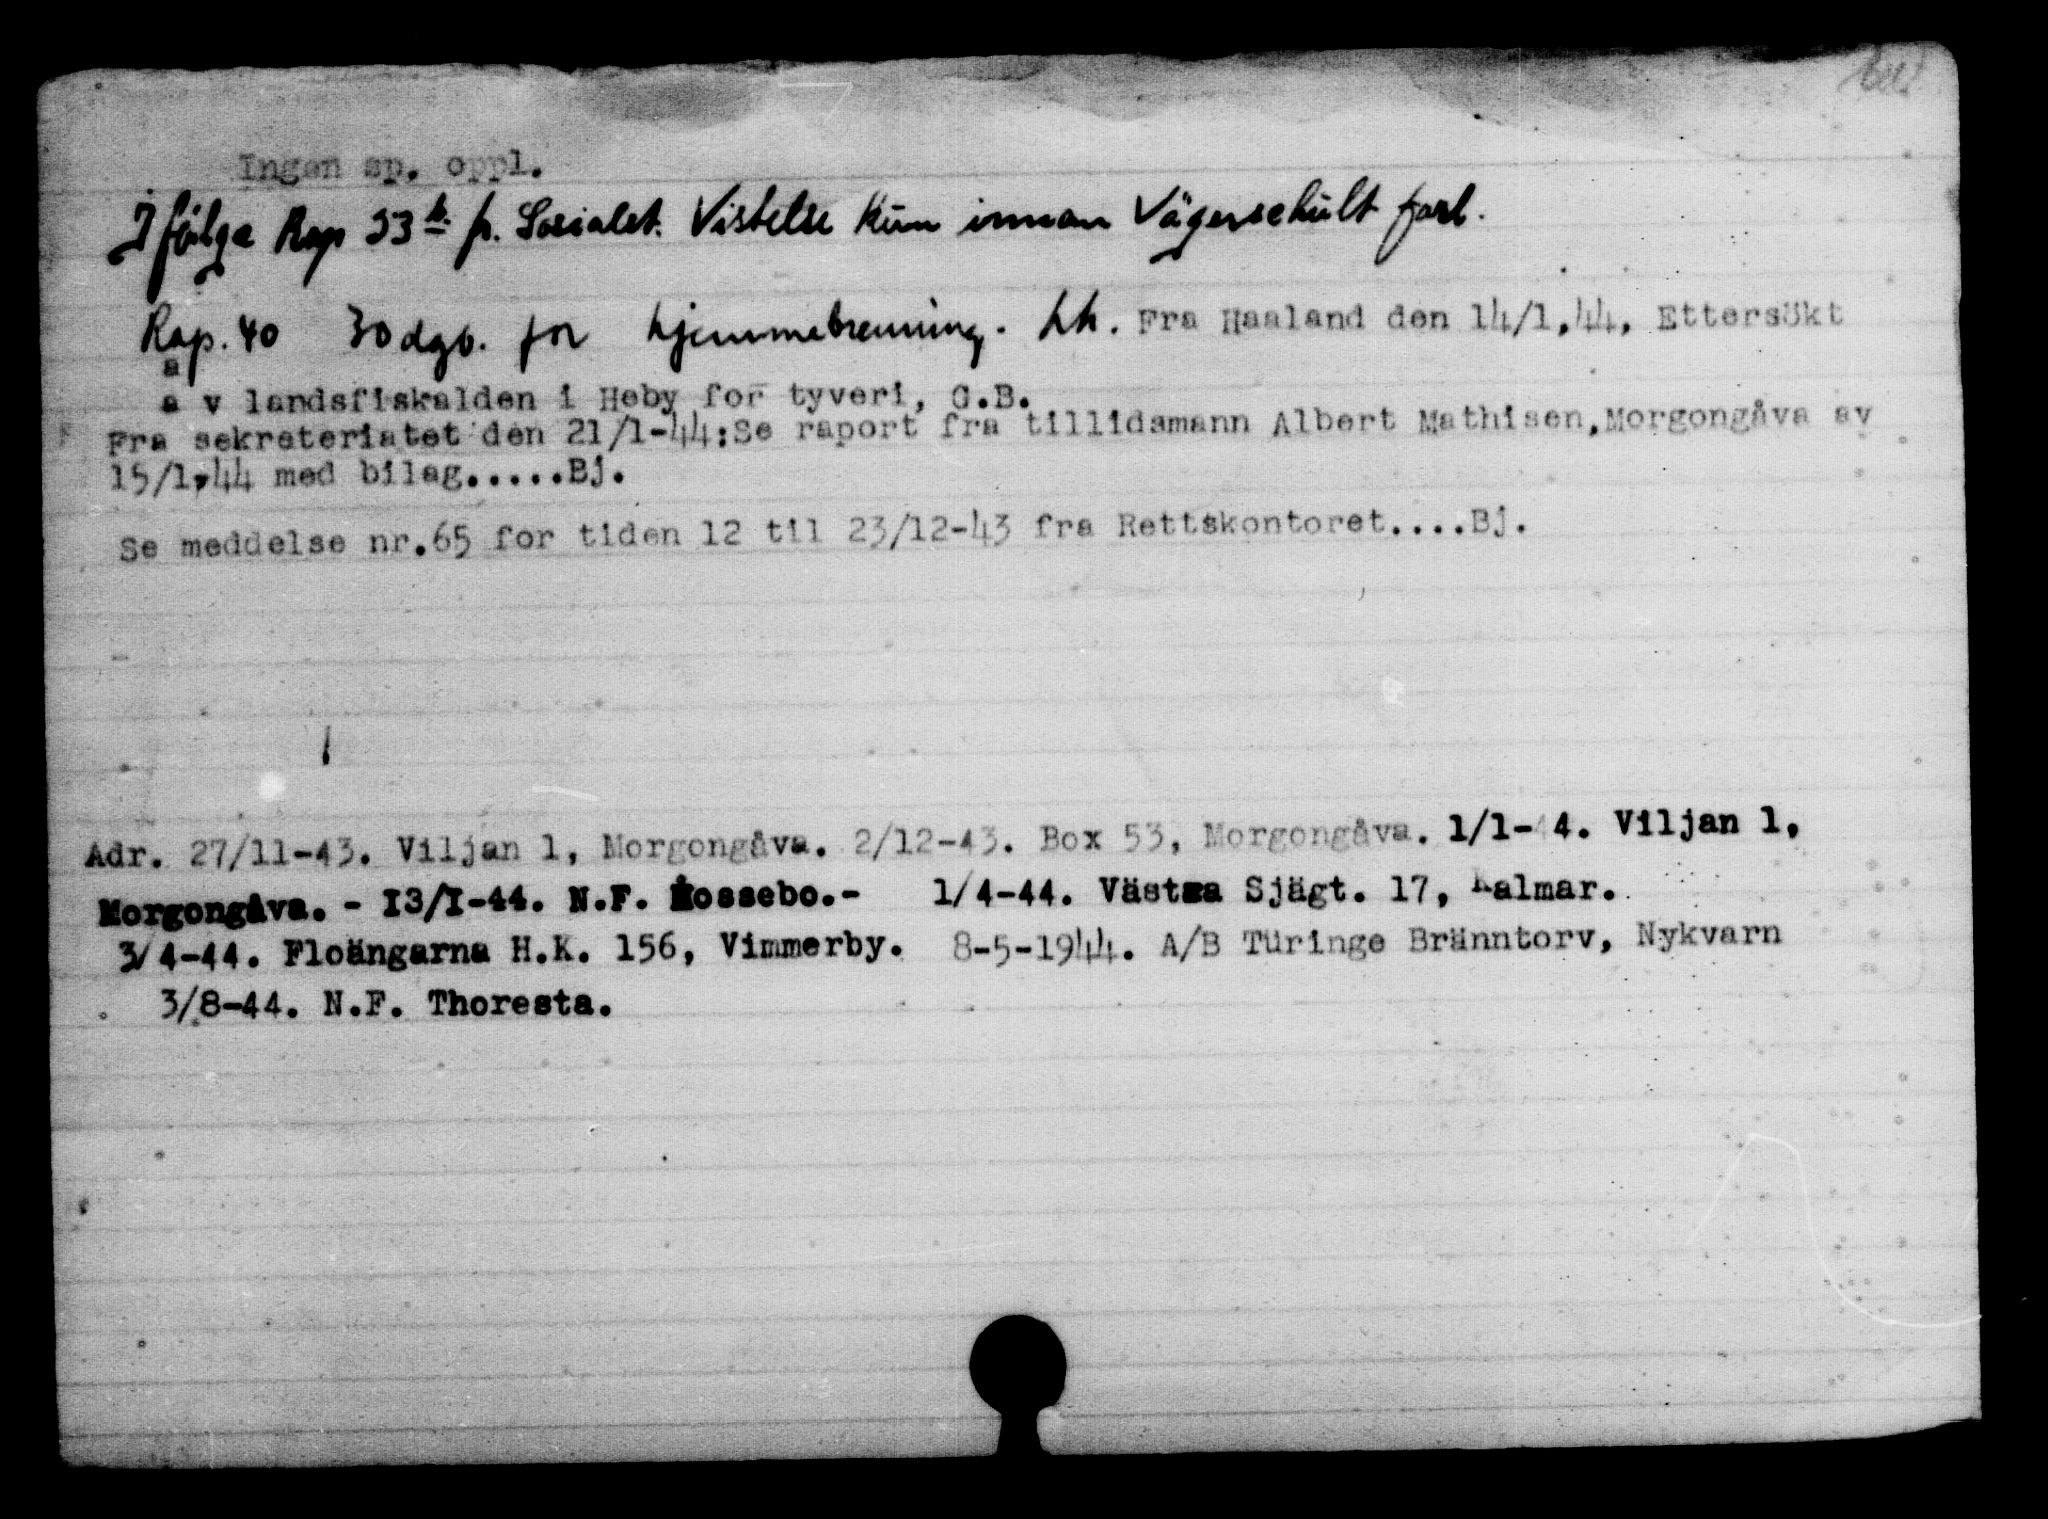 Ingen sp. oppl.
I følge Rap 33 b. fr. Sosialst. Vistelse kun innan Vägerschult farl.
Rap. 40 30 dgb. for hjemmebrenning. hh. Fra Haaland den 14/1.44. Ettersökt
a
a v landsfiskalden i Heby for tyveri, G.B.
Fra sekreteriatet den 21/1-44:Se raport fra tillidsmann Albert Mathisen,Morgongåva av
15/1.44 med bilag.....Bj.
Se meddelse nr.65 for tiden 12 til 23/12-43 fra Rettskontoret....Bj.
Adr. 27/11-43. Viljan 1, Morgongåva. 2/12-43. Box 53, Morgongåva. 1/1-44. Viljan 1,
Morgongåva. - I3/I-44. N.F. Mossebo.- 1/4-44. Västra Sjägt. 17, Kalmar.
3/4-44. Floängarna H.K. 156, Vimmerby. 8-5-1944. A/B Türinge Bränntorv, Nykvarn
3/8-44. N.F. Thoresta.